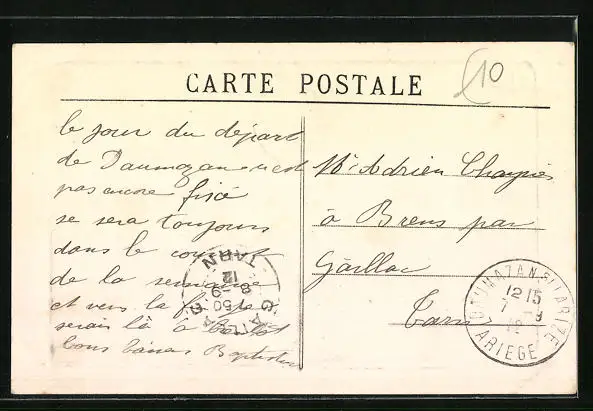 CARTE POSTALE
10
le jour du départ
de Daumazan n'est
pas encore fixé
se sera toujours
dans le courant
de la semaine
et vers la fin je
serais là à
Bons baisers Baptistin
Mr Adrien
à Brens par
Gaillac
Tarn
TARN
12
8 - 9
DAUMAZAN SUR ARIZE
12 15
7 - 9
12
ARIEGE